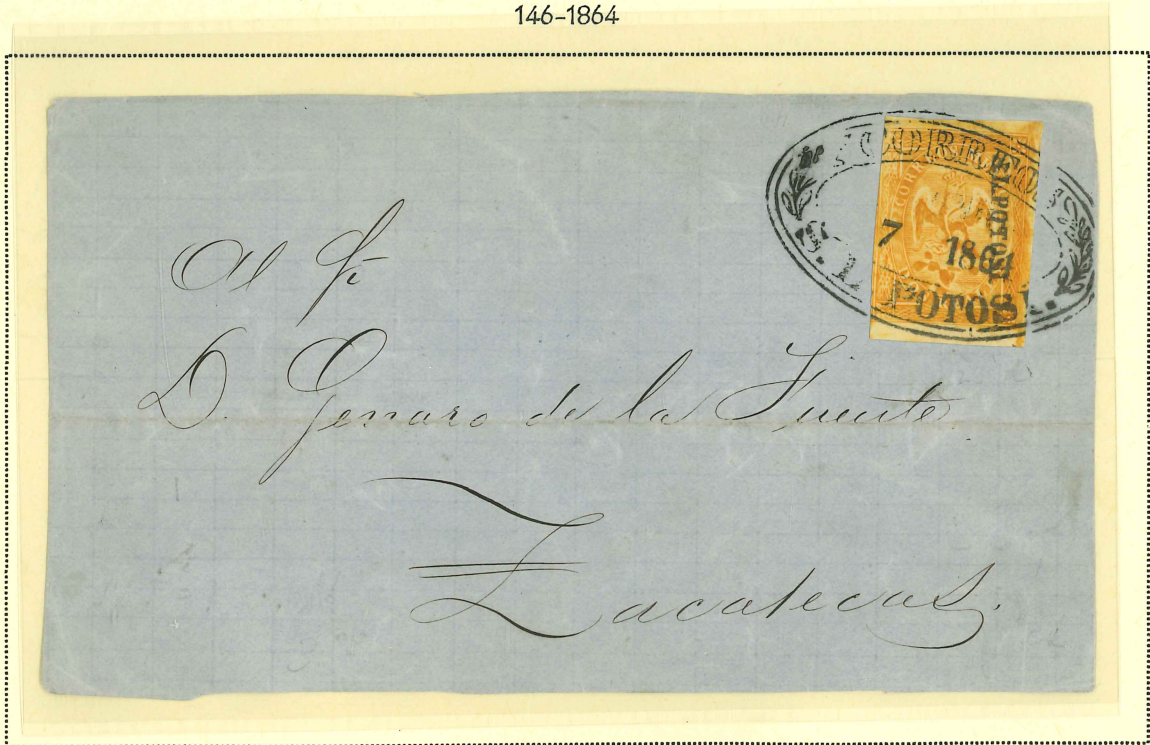 146-1864
CORREOS
7 1864
S. L. POTOSI.
Al Sr
D. Genaro de la Fuente
Zacatecas.